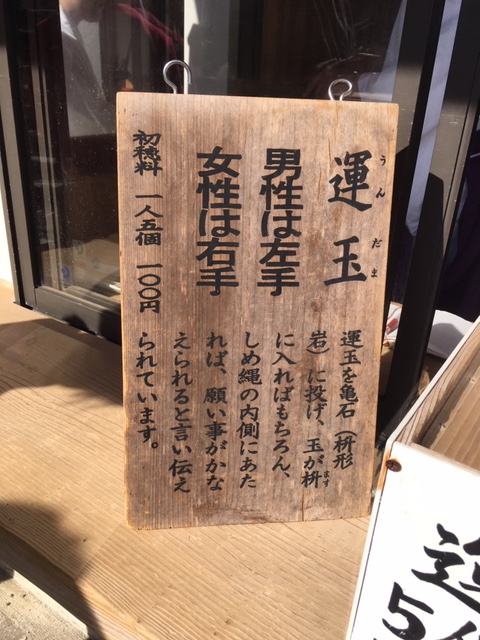 運玉
うんだま
男性は左手
女性は右手
初穂料 一人五個 一〇〇円
運玉を亀石（枡形
岩）に投げ、玉が枡
ます
に入ればもちろん、
しめ縄の内側にあた
れば、願い事がかな
えられると言い伝え
られています。
5